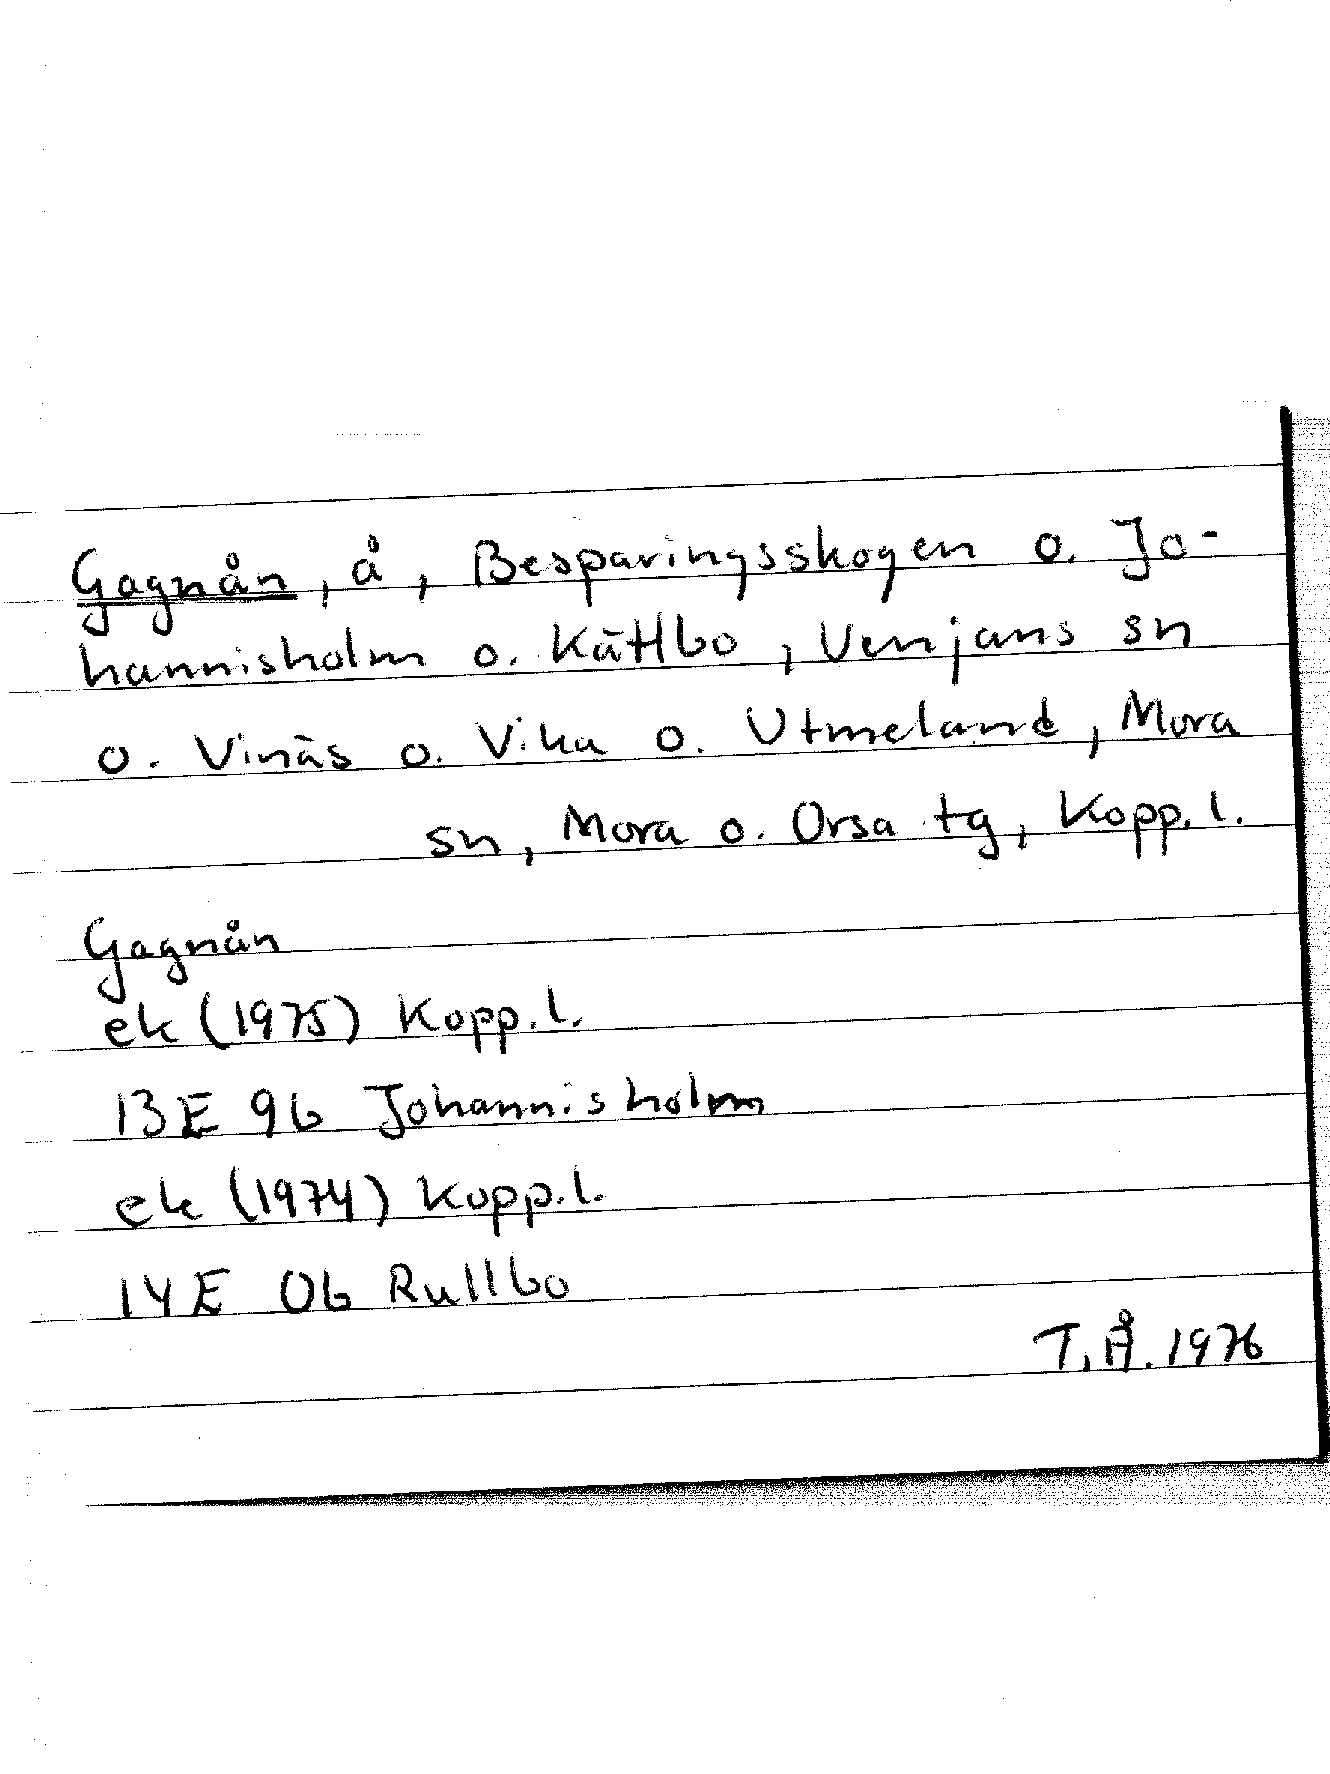 Gagnån, å, Besparingsskogen o. Jo-
hannisholm o. Kättbo, Venjans sn
o. Vinäs o. Vika o. Utmeland, Mora
sn, Mora o. Orsa tg, Kopp. l.
Gagnån
ek (1975) Kopp. l.
13E 9b Johannisholm
ek (1974) Kopp. l.
14E 0b Rullbo
T. Å. 1976